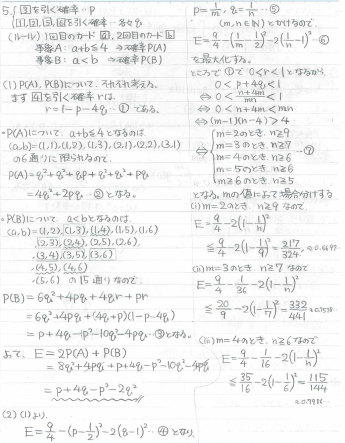 5. ④を引く確率…p
①,②,③,⑤を引く確率…各々q
(ルール) 1回目のカード a, 2回目のカード b
事象A: a+b≦4 → 確率P(A)
事象B: a<b → 確率P(B)
(1) P(A), P(B)について、それぞれ考える。
まず を引く確率rは、
r=1-p-4q …① である。
・P(A)について a+b≦4となるのは
(a,b)=(1,1),(1,2),(1,3),(2,1),(2,2),(3,1)
の6通りに限られるので、
P(A)=q²+q²+qp+q²+q²+pq
=4q²+2pq …②となる。
・P(B)について a<bとなるのは
(a,b)=(1,2),(1,3),(1,4),(1,5),(1,6)
(2,3),(2,4),(2,5),(2,6)
(3,4),(3,5),(3,6)
(4,5),(4,6)
(5,6) の15通りなので、
P(B)=6q²+4pq+4qr+pr
=6q²+4pq+(4q+p)(1-p-4q)
=p+4q-p²-10q²-4pq …③となる。
よって、E=2P(A)+P(B)
=8q²+4pq+p+4q-p²-10q²-4pq
=p+4q-p²-2q²
(2) (1)より、
E=9/4-(p-1/2)²-2(q-1)² …④となり、
p=1/m, q=1/n …⑤
(m,n∈N)とかけるので、
E=9/4-(1/m-1/2)²-2(1/n-1)² …⑥
を最大化する。
ところで①で0<r<1となるから、
0<p+4q<1
⇔ 0<(n+4m)/mn<1
⇔ 0<n+4m<mn
⇔ (m-1)(n-4)>4
⇔ m=2のとき n≧9
m=3のとき n≧7
m=4のとき n≧6
m=5のとき n≧6
m≧6のとき n≧5 …⑦
となる。mの値によって場合分けする
(i) m=2のとき、n≧9なので
E=9/4-2(1-1/n)²
≦9/4-2(1-1/9)²=217/324 ≈0.6697
(ii) m=3のとき n≧7なので
E=9/4-1/36-2(1-1/n)²
≦20/9-2(1-1/7)²=332/441 ≈0.7528
(iii) m=4のとき、n≧6なので
E=9/4-1/16-2(1-1/n)²
≦35/16-2(1-1/6)²=115/144
≈0.7986